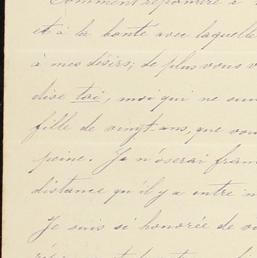 Comment répondre à
et à la bonté avec laquelle
à mes désirs; de plus vous v
dise toi, moi qui ne sui
fille de vingt ans, que vou
peine. Je n'oserai fran
distance qu'il y a entre m
Je suis si honorée de vo